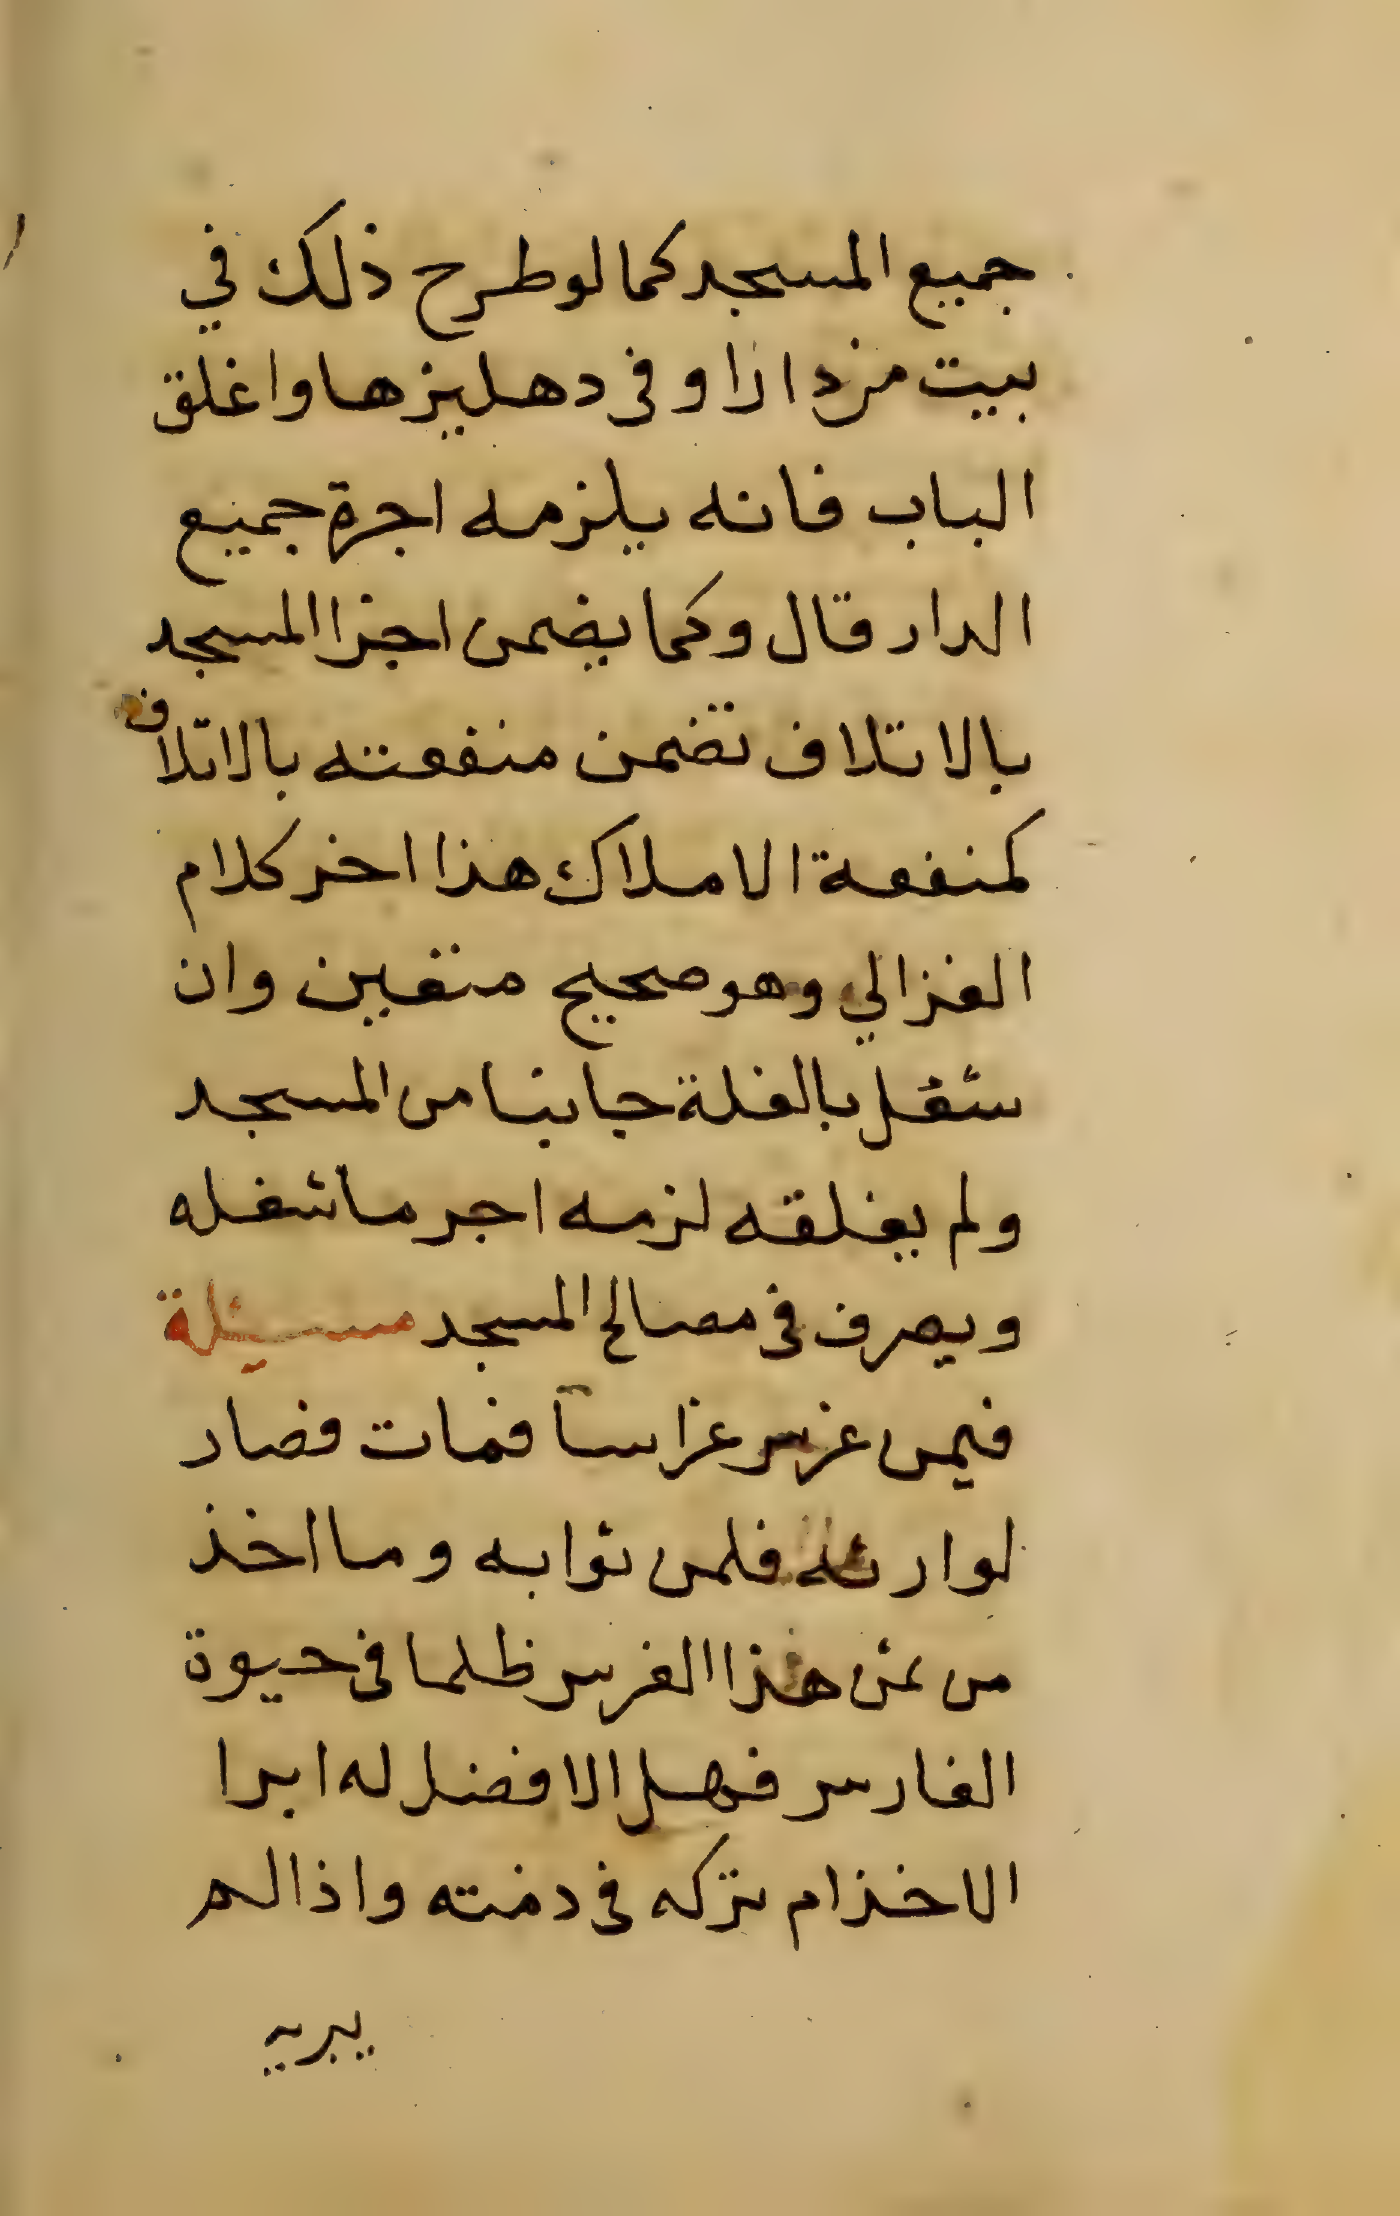 جميع المسجد كما لو طرح ذلك في
بيت من دار او في دهليزها واغلق
الباب فانه يلزمه اجرة جميع
الدار قال وكما يضمن اجزا المسجد
بالاتلاف تضمن منفعته بالاتلاف
كمنفعة الاملاك هذا اخر كلام
الغزالي وهو صحيح متعين وان
شغل بالغلة جانبا من المسجد
ولم يغلقه لزمه اجر ما شغله
ويصرف في مصالح المسجد مسئلة
فيمن غرس غراسا فمات فصار
لوارثه فلمن ثوابه وما اخذ
من ثمن هذا الغرس ظلما في حيوة
الغارس فهل الافضل له ابرا
الاخذ ام تركه في ذمته واذا لم
يبريه